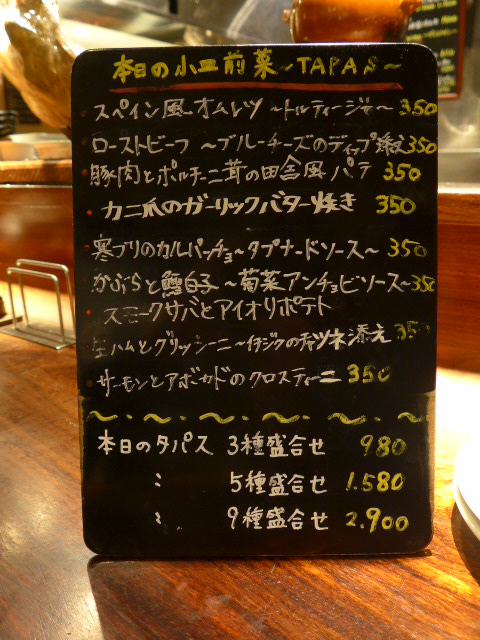 本日の小皿前菜〜TAPAS〜
スペイン風オムレツ 〜トルティージャ〜 350
ローストビーフ 〜ブルーチーズのディップ添え 350
豚肉とポルチーニ茸の田舎風パテ 350
カニ爪のガーリックバター焼き 350
寒ブリのカルパッチョ〜タプナードソース〜 350
かぶらと鱈白子 〜菊菜アンチョビソース〜 350
スモークサバとアイオリポテト
生ハムとグリッシーニ〜イチジクのチャツネ添え 350
サーモンとアボカドのクロスティーニ 350
〜.〜.〜.〜.〜.〜.〜
本日のタパス 3種盛合せ 980
: 5種盛合せ 1.580
: 9種盛合せ 2.900